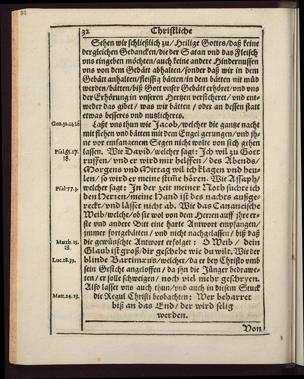 32
Christliche
Sehen wir schließlich zu/ Heilige Gottes/ daß keine
dergleichen Gedancken/ die der Satan und das Fleisch
uns eingeben möchten/ auch keine andere Hindernussen
uns von dem Gebätt abhalten/ sonder daß wir in dem
Gebätt anhalten/ fleissig bätten/ in dem bätten nit müd
werden/ bätten/ biß Gott unser Gebätt erhört/ und uns
der Erhörung in unseren Herzen versicheret/ und ent-
weder das gibt/ was wir bätten/ oder an dessen statt
etwas bessers und nutzlichers.
Gen.32.24.26
Laßt uns thun wie Jacob/ welcher die gantze nacht
mit flehen und bätten mit dem Engel gerungen/ und oh-
ne vor empfangenem Segen nicht wolte von sich gehen
Psal.55.17.
18.
lassen. Wie David/ welcher sagt: Ich wil zu Gott
ruffen/ und er wird mir helffen/ des Abends/
Morgens und Mittag wil ich klagen und heu-
len/ so wird er meine stim̃e hören. Wie Assaph/
Psal.77.3.
welcher sagt: In der zeit meiner Noth suchte ich
den Herzen/ meine Hand ist des nachts außge-
reckt/ und lasset nicht ab. Wie das Cananeische
Weib/ welche/ ob sie wol von dem Herzen auff ihre er-
ste und andere Bitt eine harte Antwort empfangen/
immer fortgebätten/ und nicht nachgelassen/ biß daß
Matth.15.
28.
die gewünschte Antwort erfolget: O Weib/ dein
Glaub ist groß/ dir geschehe wie du wilt. Wie der
Luc.18.39.
blinde Bartimæus/ welcher/ da er bey Christo umb
sein Gesicht angeloffen/ da ihn die Jünger bedraue-
ten/ er solle schweigen/ noch viel mehr geschryen.
Also lasset uns auch thun/ und auch in diesem Stuck
Matt.24.13.
die Regul Christi beobachten: Wer beharret
biß an das End/ der wird selig
werden.
Von